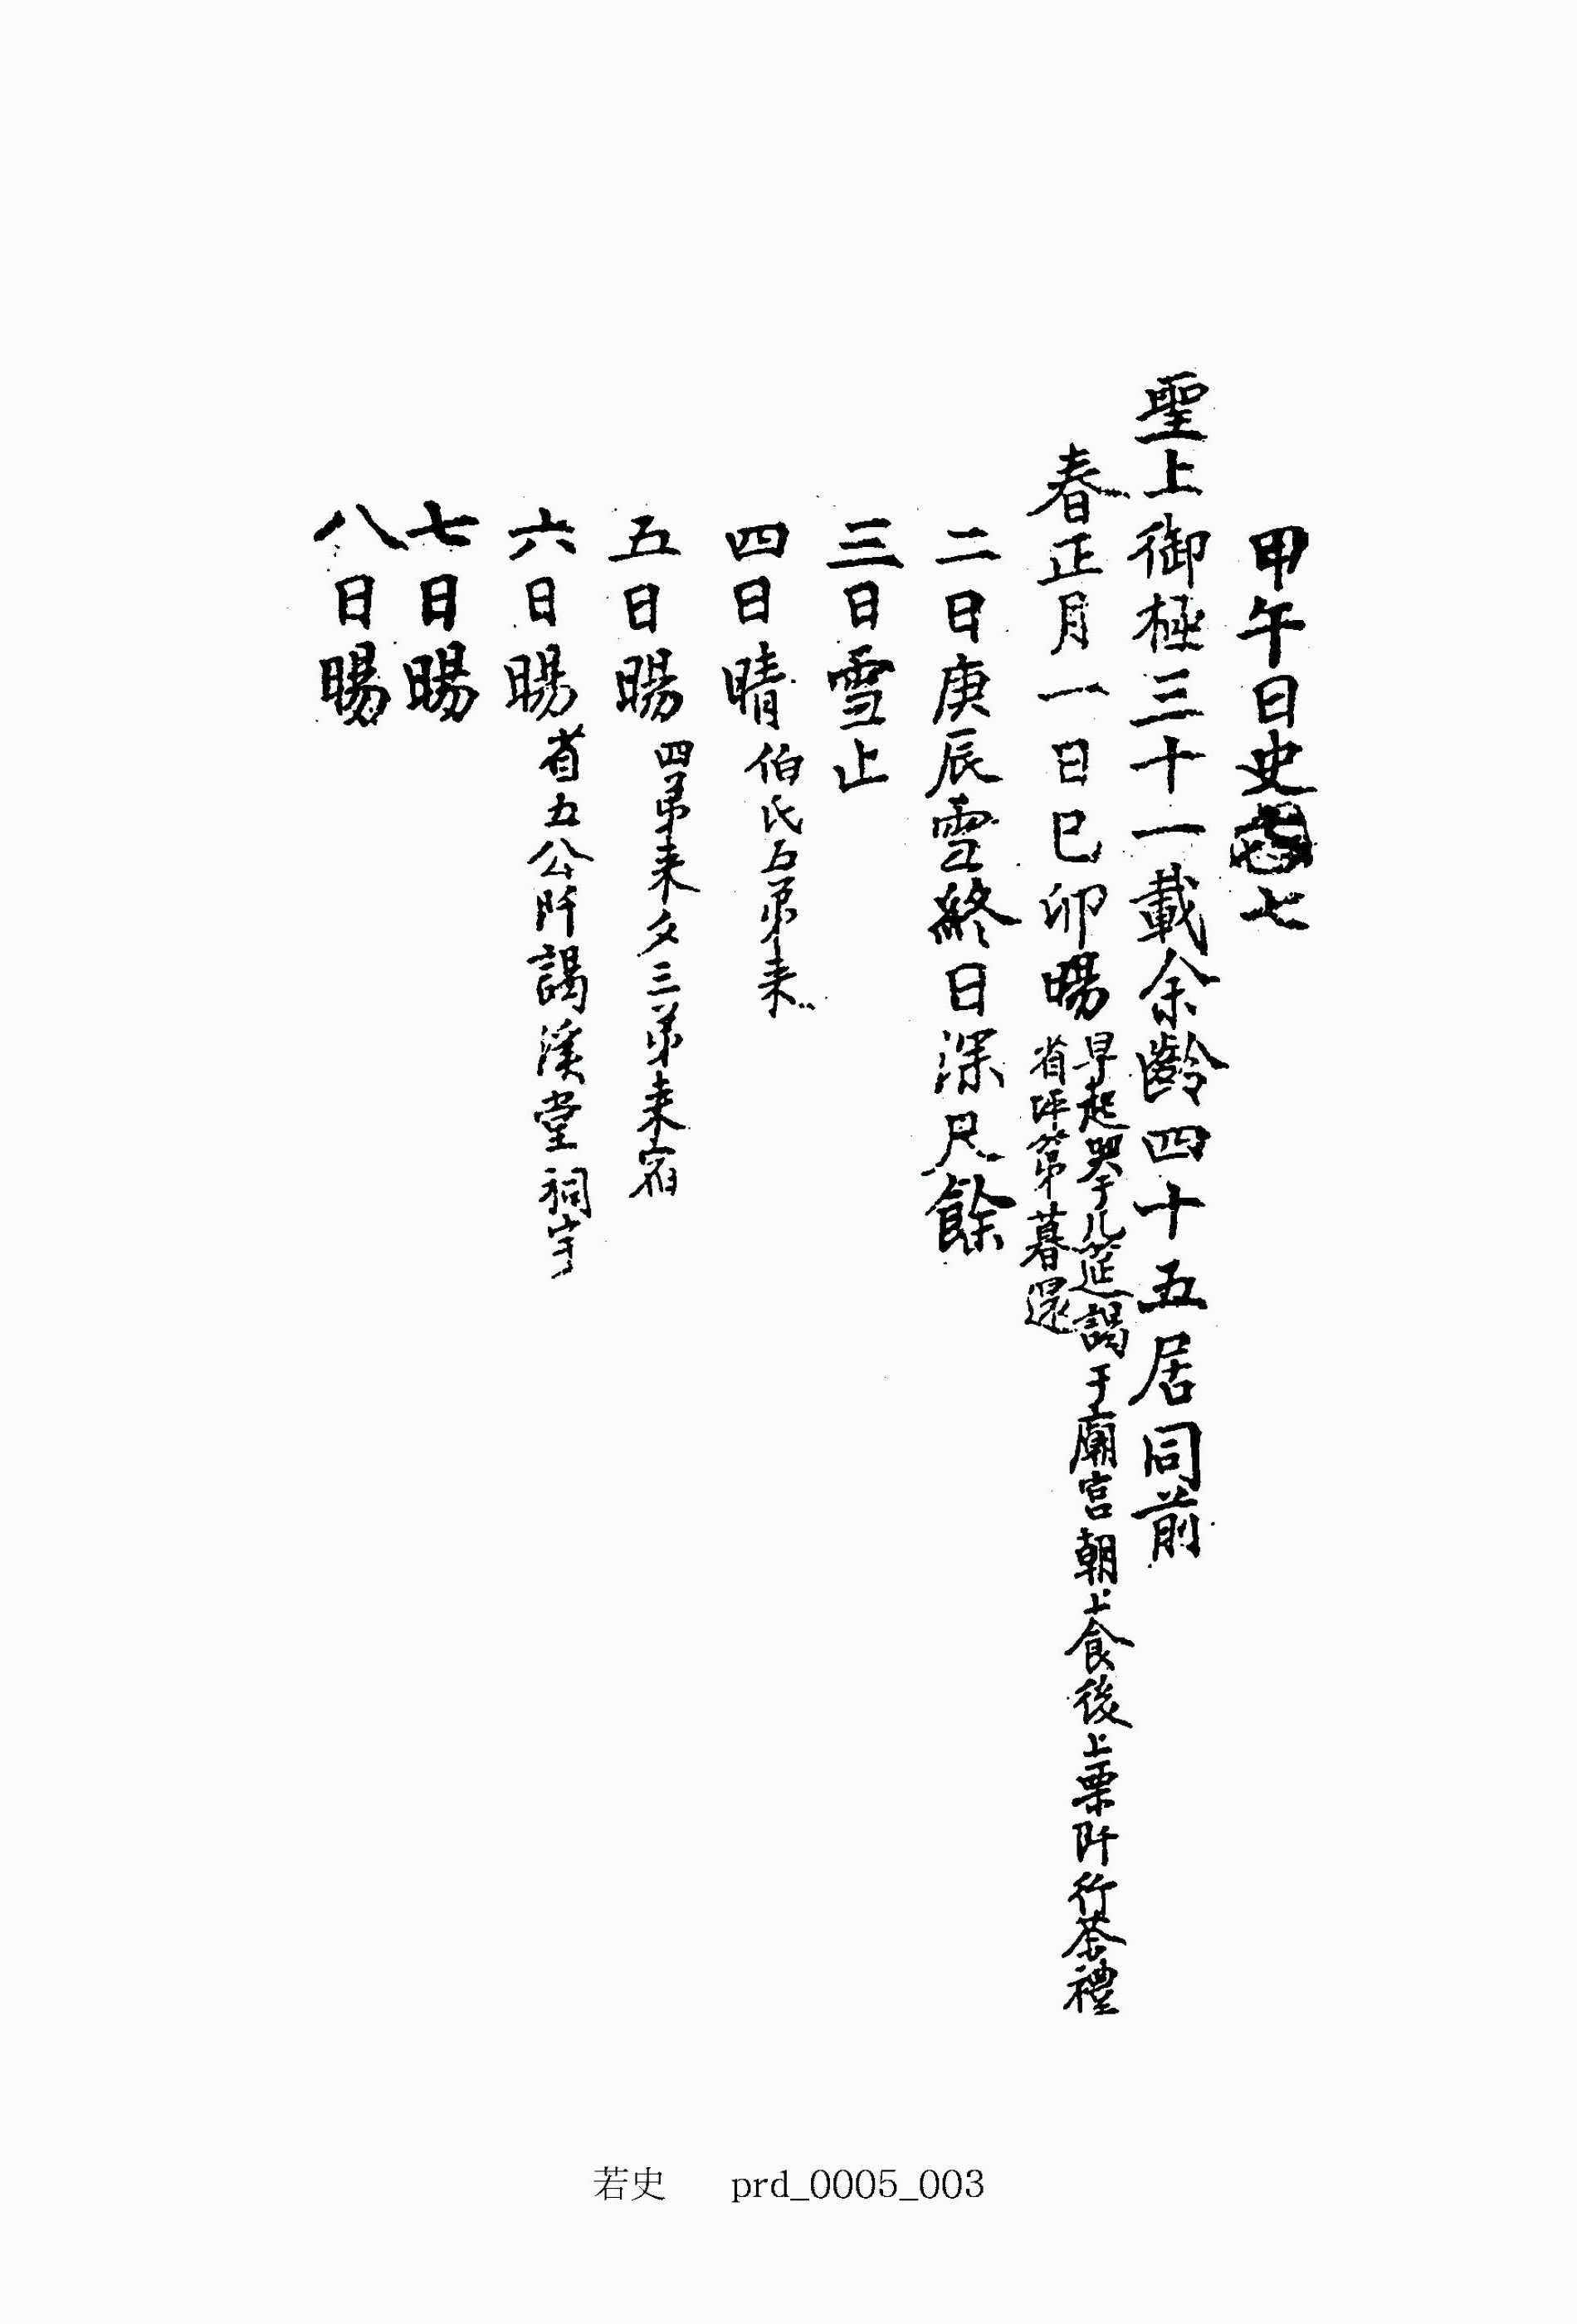 甲午日史七
聖上御極三十一載余齡四十五居同前
春正月一日己卯暘早起哭于几筵謁于廟宮朝上食後上栗阡行茶禮
省坪第暮還
二日庚辰雪終日深尺餘
三日雪止
四日晴伯氏五弟来
五日暘四弟来夕三弟来宿
六日暘省五公阡謁溪堂祠宇
七日暘
八日暘
若史 prd_0005_003